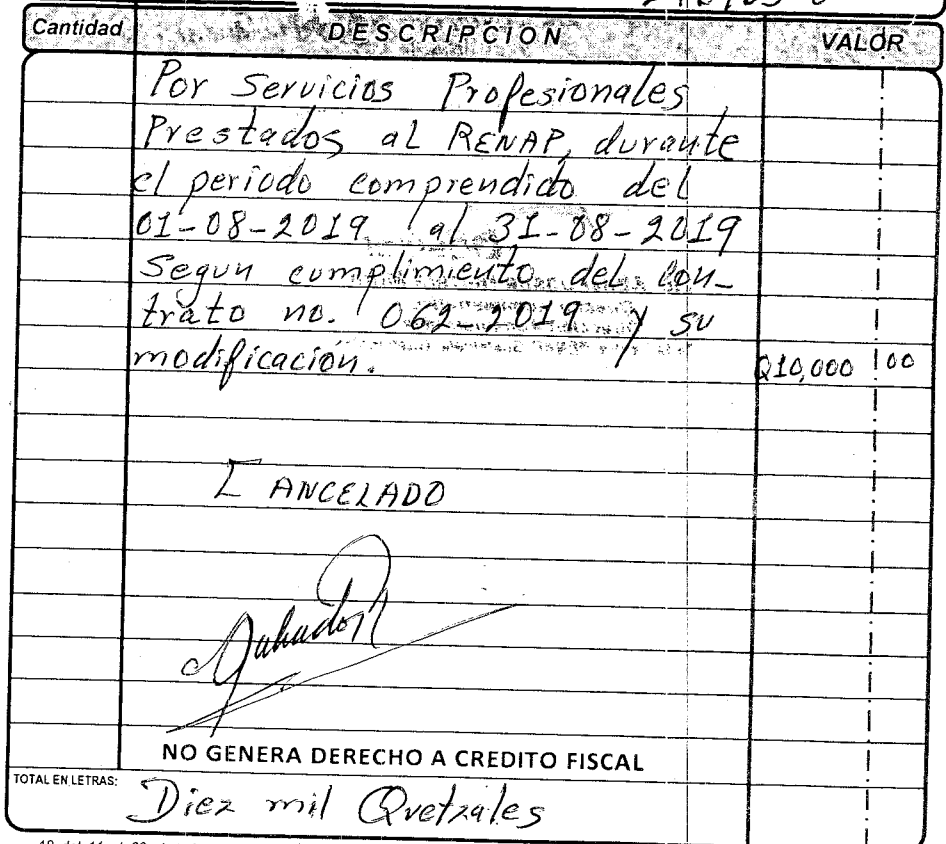 Cantidad DESCRIPCION VALOR
Por Servicios Profesionales
Prestados al RENAP, durante
el periodo comprendido del
01-08-2019 al 31-08-2019
Segun cumplimiento del con-
trato no. 062-2019 y su
modificación. Q10,000 00
CANCELADO
NO GENERA DERECHO A CREDITO FISCAL
TOTAL EN LETRAS: Diez mil Quetzales